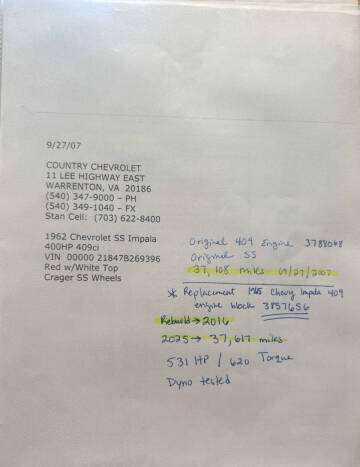 9/27/07
COUNTRY CHEVROLET
11 LEE HIGHWAY EAST
WARRENTON, VA 20186
(540) 347-9000 – PH
(540) 349-1040 – FX
Stan Cell: (703) 622-8400
1962 Chevrolet SS Impala
400HP 409ci
VIN 00000 21847B269396
Red w/White Top
Crager SS Wheels
Original 409 Engine 3788068
Original SS
37,108 miles 09/27/2007
* Replacement 1965 Chevy Impala 409
engine block 3857656
Rebuild → 2016
2025 → 37,617 miles
531 HP / 620 Torque
Dyno tested